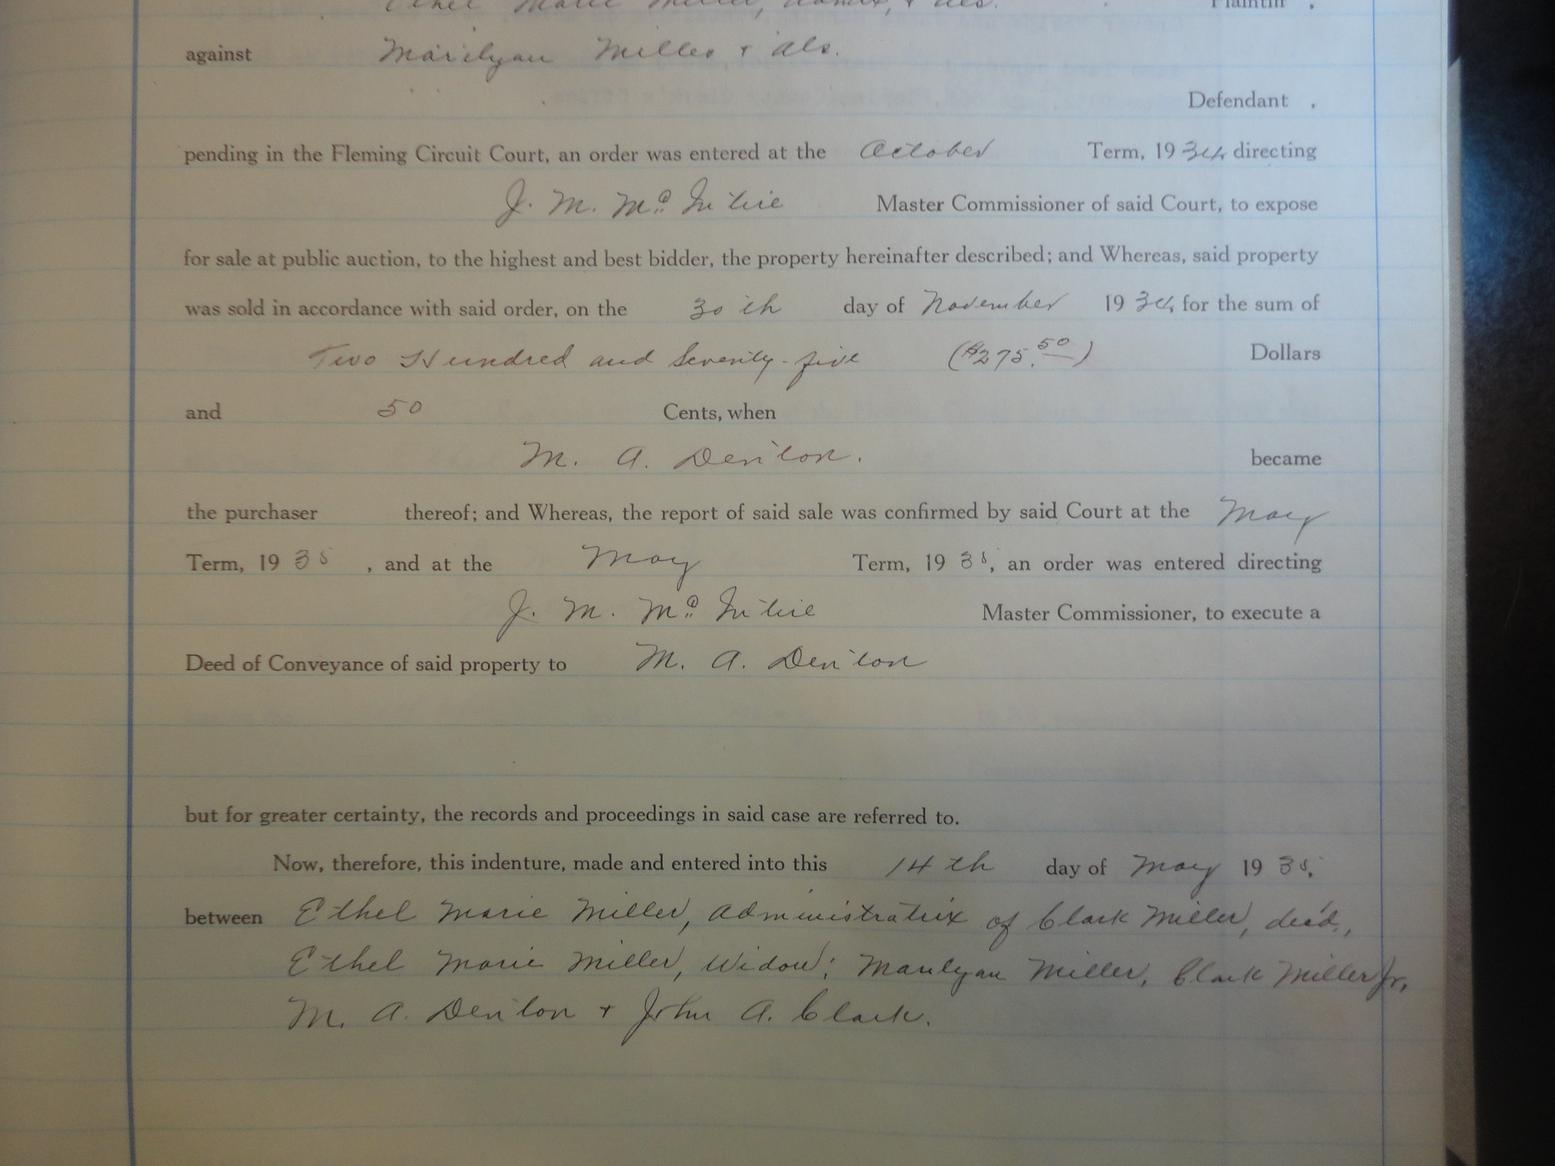 Ethel Marie Miller, Admrx, + als. Plaintiff ,
against Marilynn Miller + als.
Defendant .
pending in the Fleming Circuit Court, an order was entered at the October Term, 1934, directing
J. M. McIntire Master Commissioner of said Court, to expose
for sale at public auction, to the highest and best bidder, the property hereinafter described; and Whereas, said property
was sold in accordance with said order, on the 30th day of November 1934, for the sum of
Two Hundred and Seventy-five ($275.50) Dollars
and 50 Cents, when
M. A. Denton. became
the purchaser thereof; and Whereas, the report of said sale was confirmed by said Court at the May
Term, 1935 , and at the May Term, 1935, an order was entered directing
J. M. McIntire Master Commissioner, to execute a
Deed of Conveyance of said property to M. A. Denton
but for greater certainty, the records and proceedings in said case are referred to.
Now, therefore, this indenture, made and entered into this 14th day of May 1935,
between Ethel Marie Miller, Administratrix of Clark Miller, dec'd.,
Ethel Marie Miller, Widow; Marilynn Miller, Clark Miller Jr,
M. A. Denton + John A. Clark.